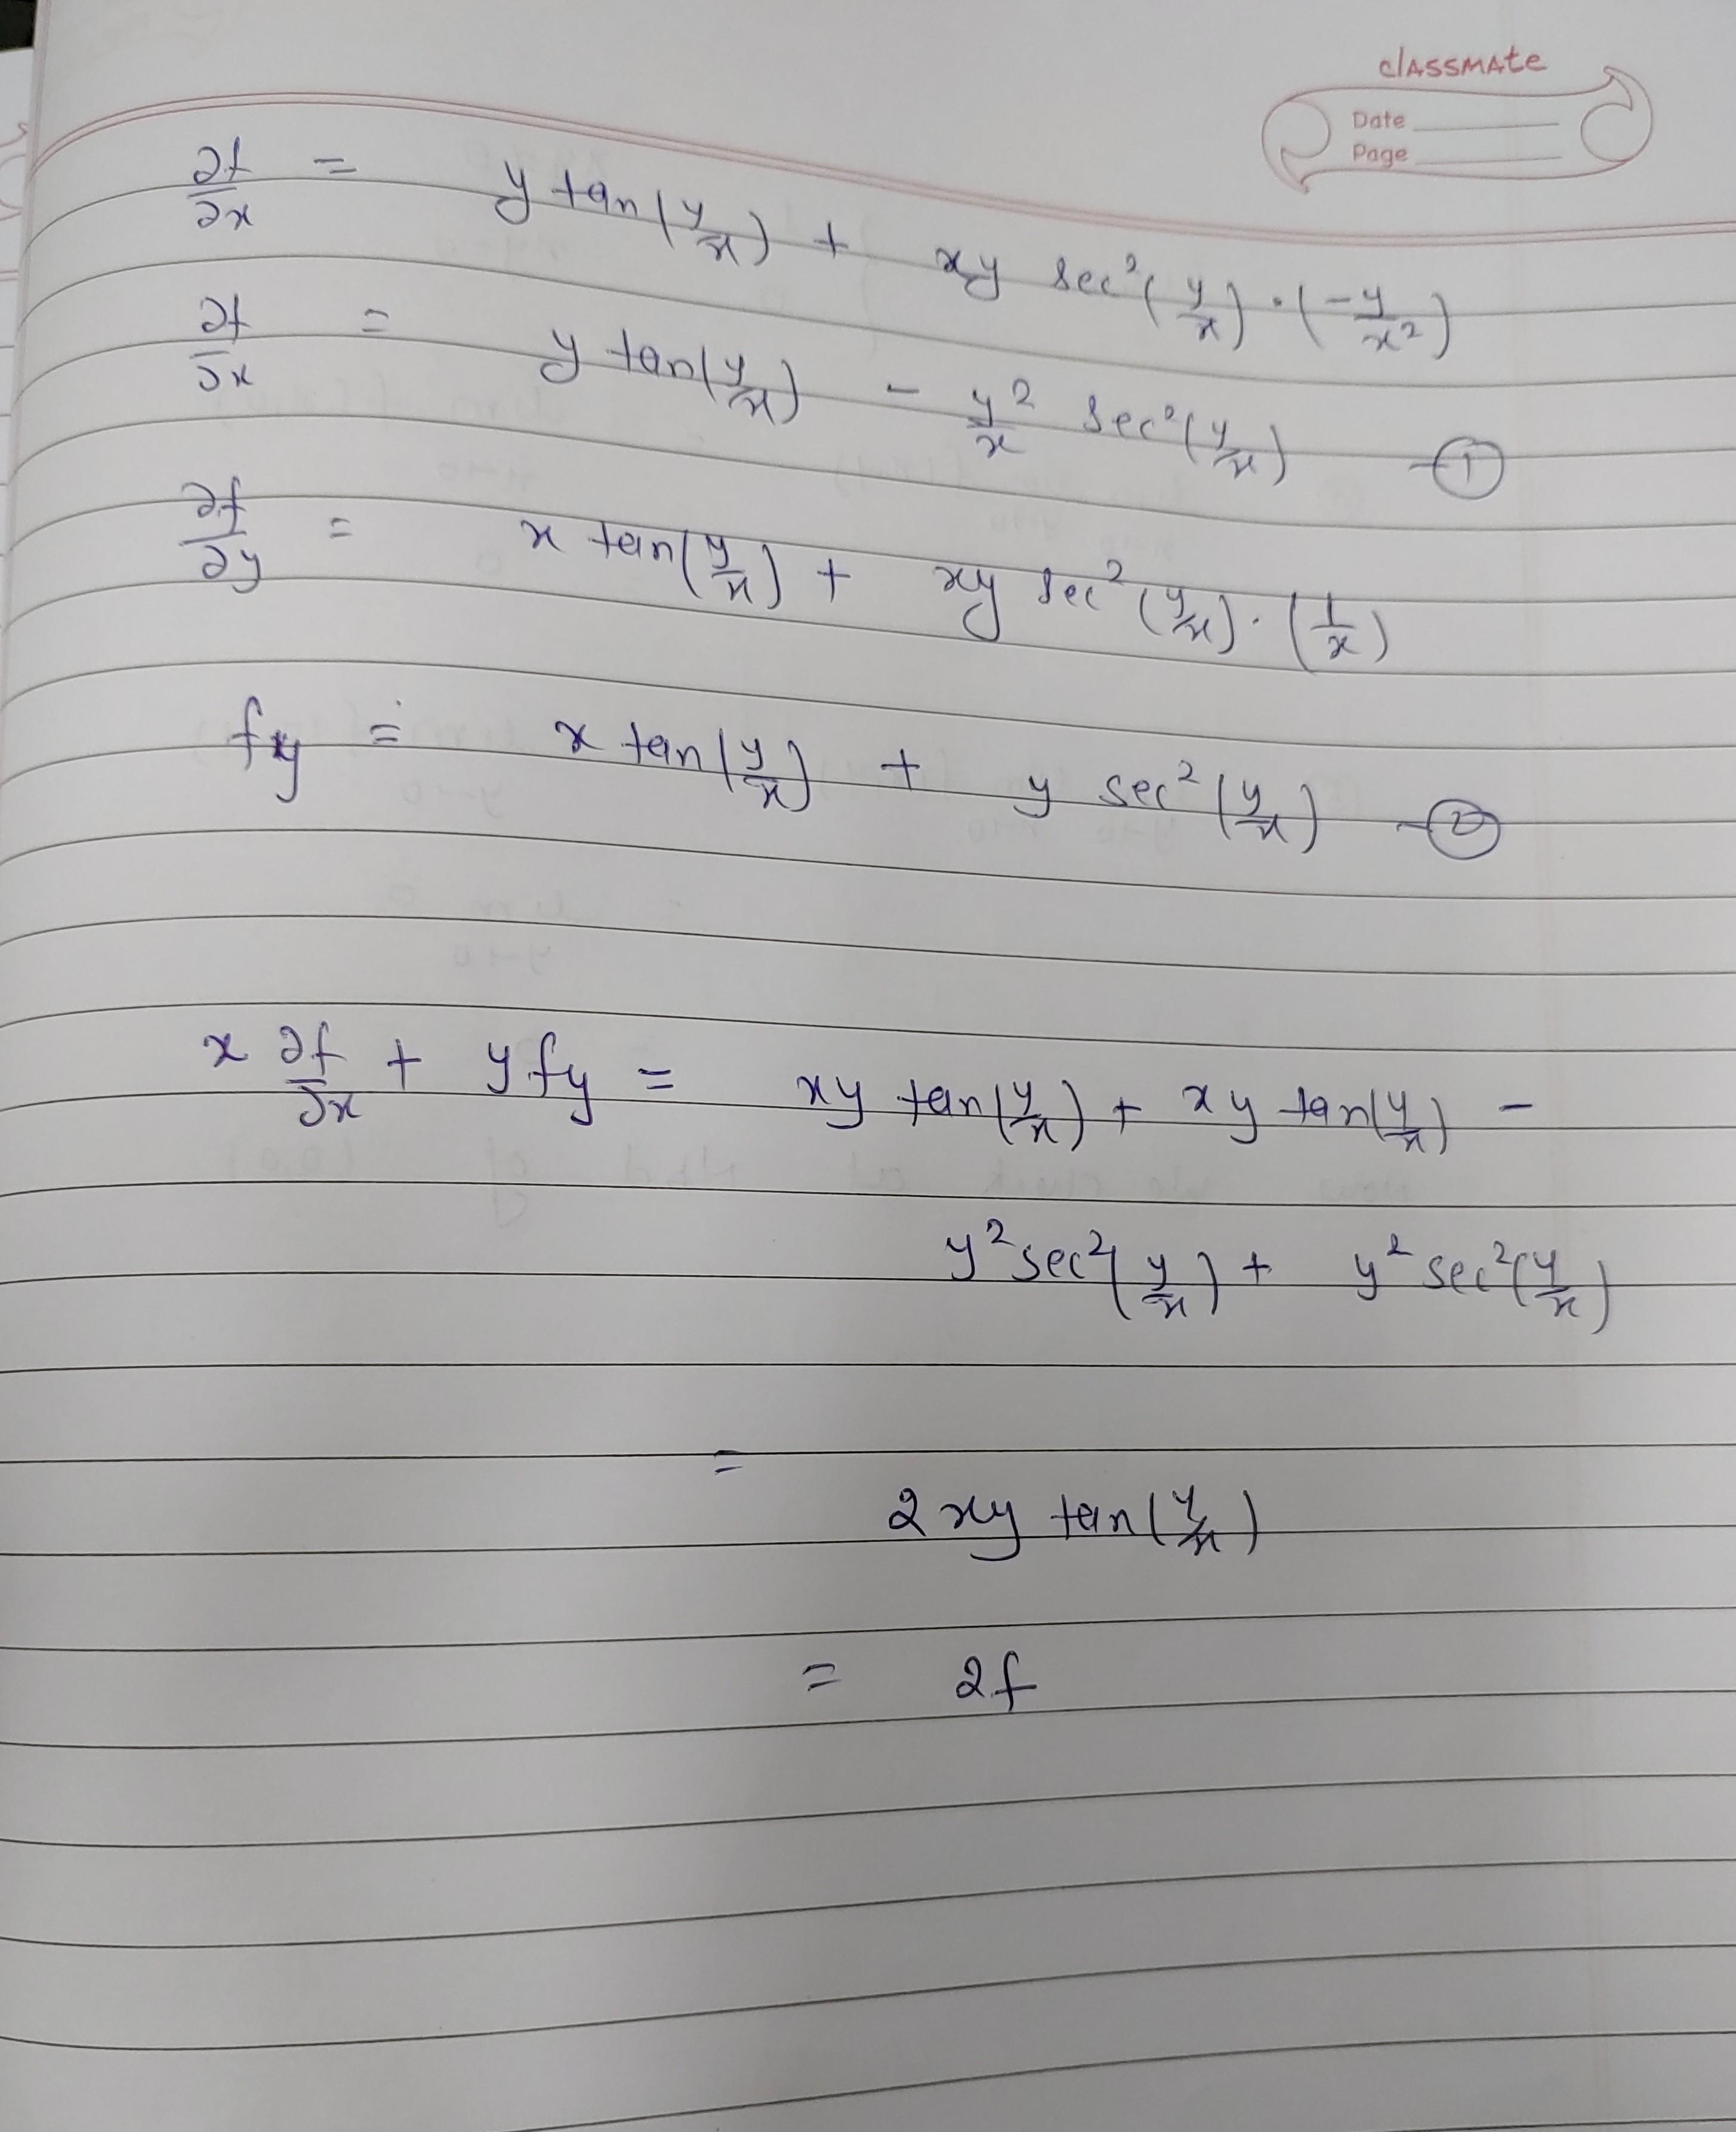 classmate
Date
Page
∂f/∂x = y tan(y/x) + xy sec²(y/x)·(-y/x²)
∂f/∂x = y tan(y/x) - y²/x sec²(y/x) —①
∂f/∂y = x tan(y/x) + xy sec²(y/x)·(1/x)
fy = x tan(y/x) + y sec²(y/x) —②
x ∂f/∂x + y fy = xy tan(y/x) + xy tan(y/x) -
y² sec²(y/x) + y² sec²(y/x)
= 2xy tan(y/x)
= 2f